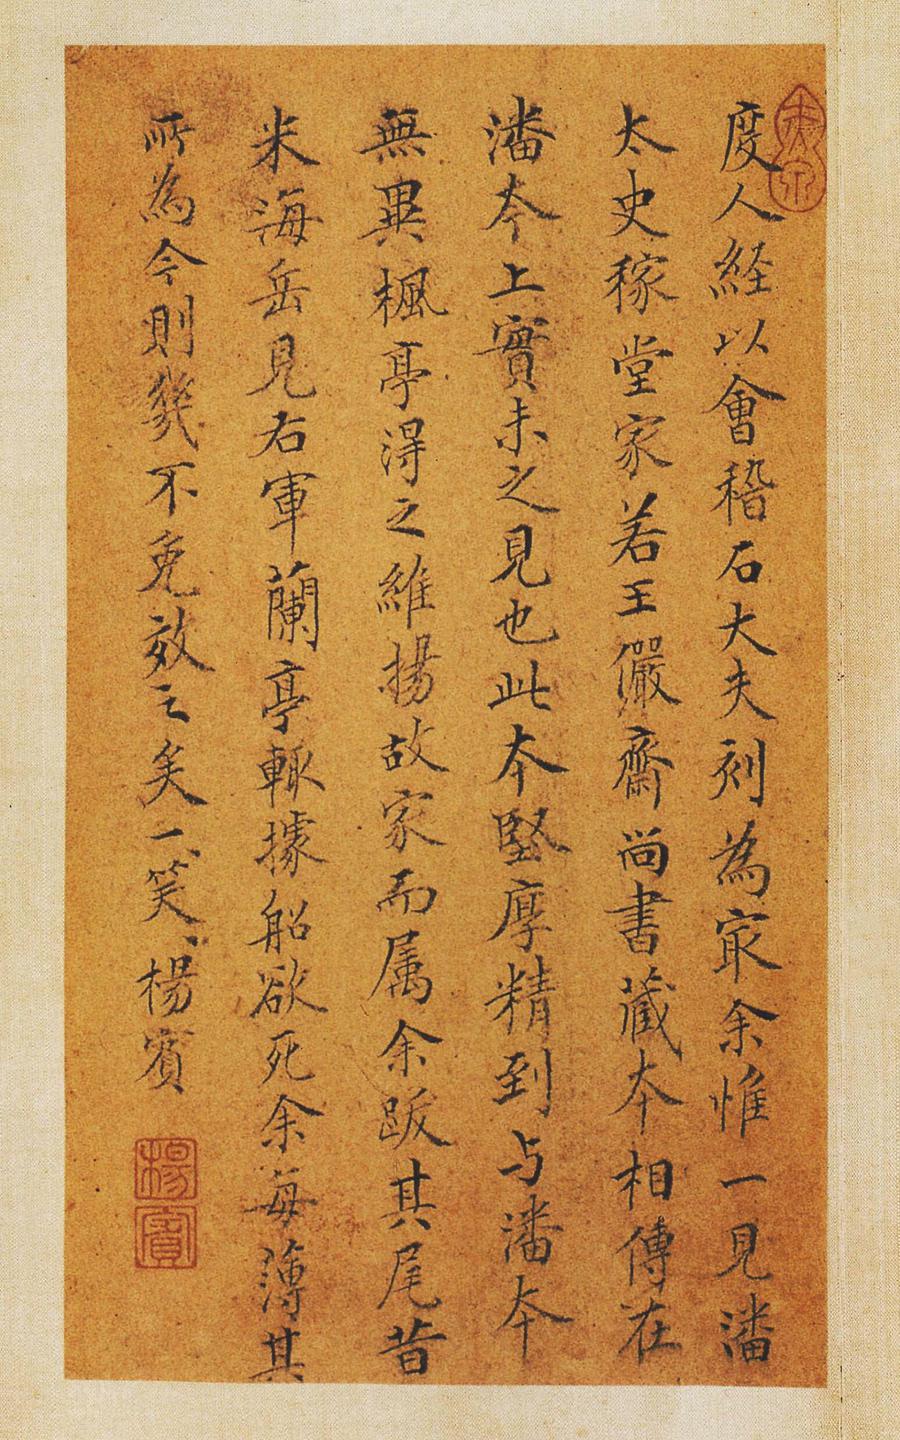 度人経以會稽石大夫刻為㝡余惟一見潘
太史稼堂家若王儼齋尚書藏夲相傳在
潘夲上實未之見也此夲堅厚精到与潘夲
無異楓亭得之維揚故家而属余跋其尾昔
米海岳見右軍蘭亭輙據船欲死余每薄其
所為今則幾不免效之矣一笑楊賓
楊賓